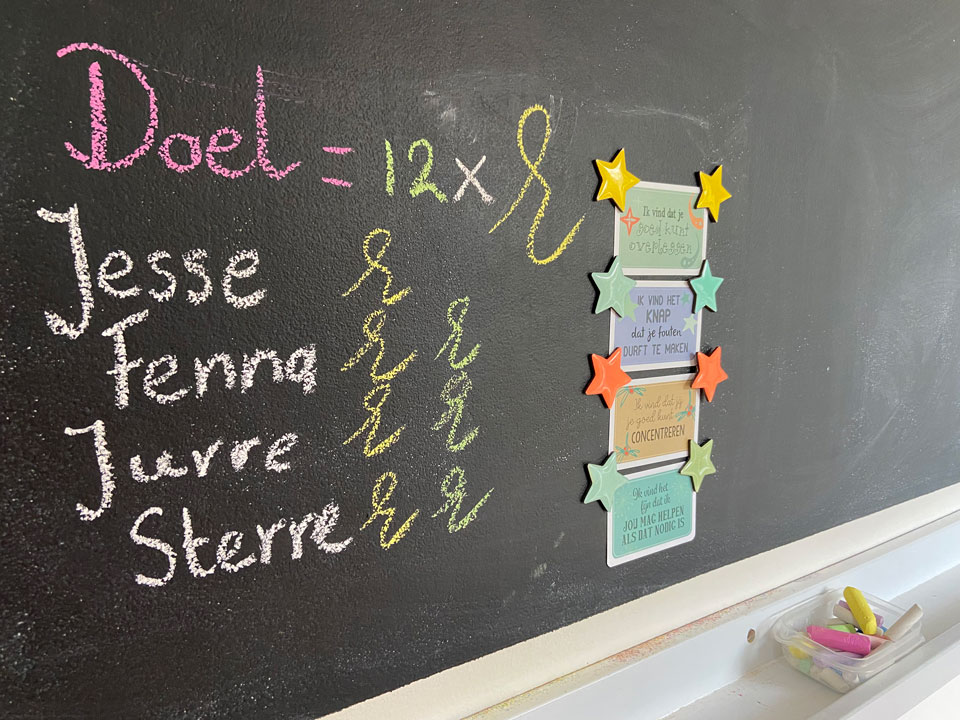 Doel = 12 x r
Jesse r
Fenna r r
Jurre r r
Sterre r r
Ik vind dat je
goed kunt
overleggen
IK VIND HET
KNAP
dat je fouten
DURFT TE MAKEN
Ik vind dat jij
je goed kunt
CONCENTREREN
Ik vind het
fijn dat ik
JOU MAG HELPEN
ALS DAT NODIG IS